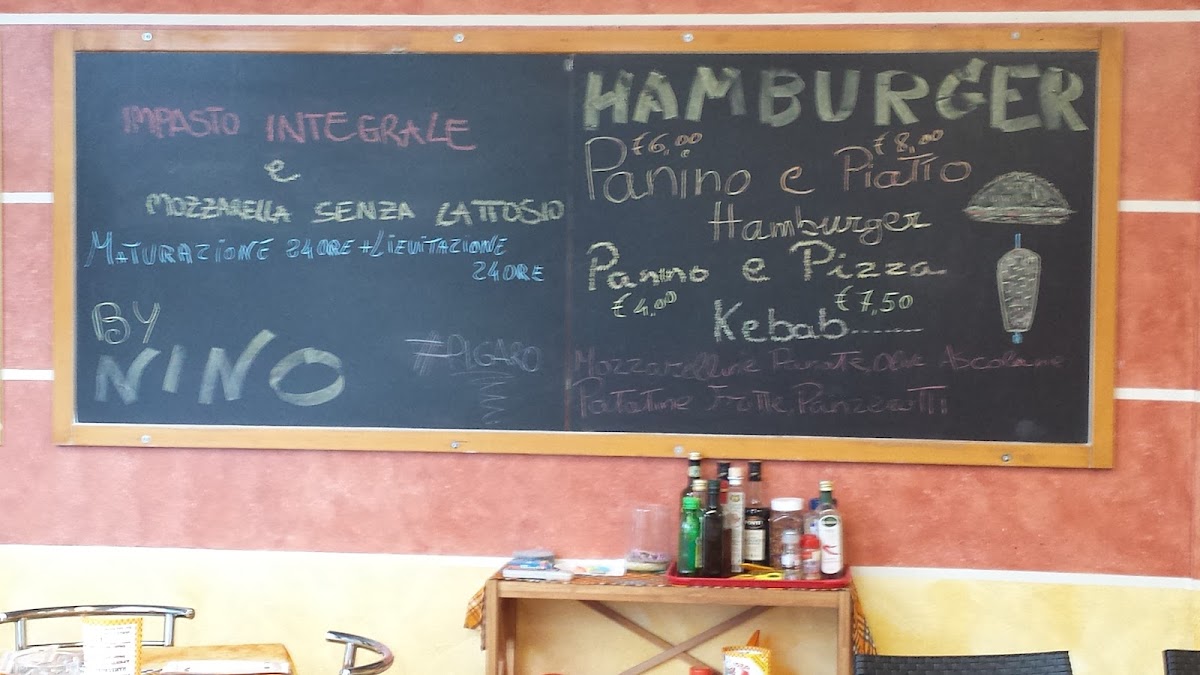 IMPASTO INTEGRALE
e
MOZZARELLA SENZA LATTOSIO
MATURAZIONE 24 ORE + LIEVITAZIONE
24 ORE
BY
NINO
HAMBURGER
€6,00 €8,00
Panino e Piatto
Hamburger
Panino e Pizza
€4,00 €7,50
Kebab........
Mozzarelline Panate, Olive Ascolane
Patatine Fritte, Panzerotti